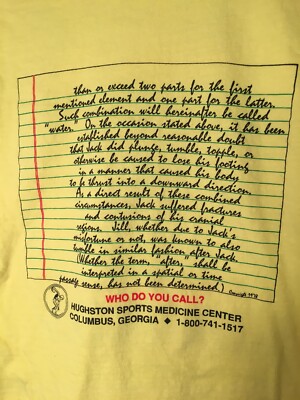 than or exceed two parts for the first
mentioned element and one part for the latter.
Such combination will hereinafter be called
"water." On the occasion stated above, it has been
established beyond reasonable doubt
that Jack did plunge, tumble, topple, or
otherwise be caused to lose his footing
in a manner that caused his body
to be thrust into a downward direction.
As a direct result of these combined
circumstances, Jack suffered fractures
and contusions of his cranial
regions. Jill, whether due to Jack's
misfortune or not, was known to also
tumble in similar fashion after Jack.
(Whether the term, after, shall be
interpreted in a spatial or time
passage sense, has not been determined.)
Copyright
WHO DO YOU CALL?
HUGHSTON SPORTS MEDICINE CENTER
COLUMBUS, GEORGIA ◆ 1-800-741-1517